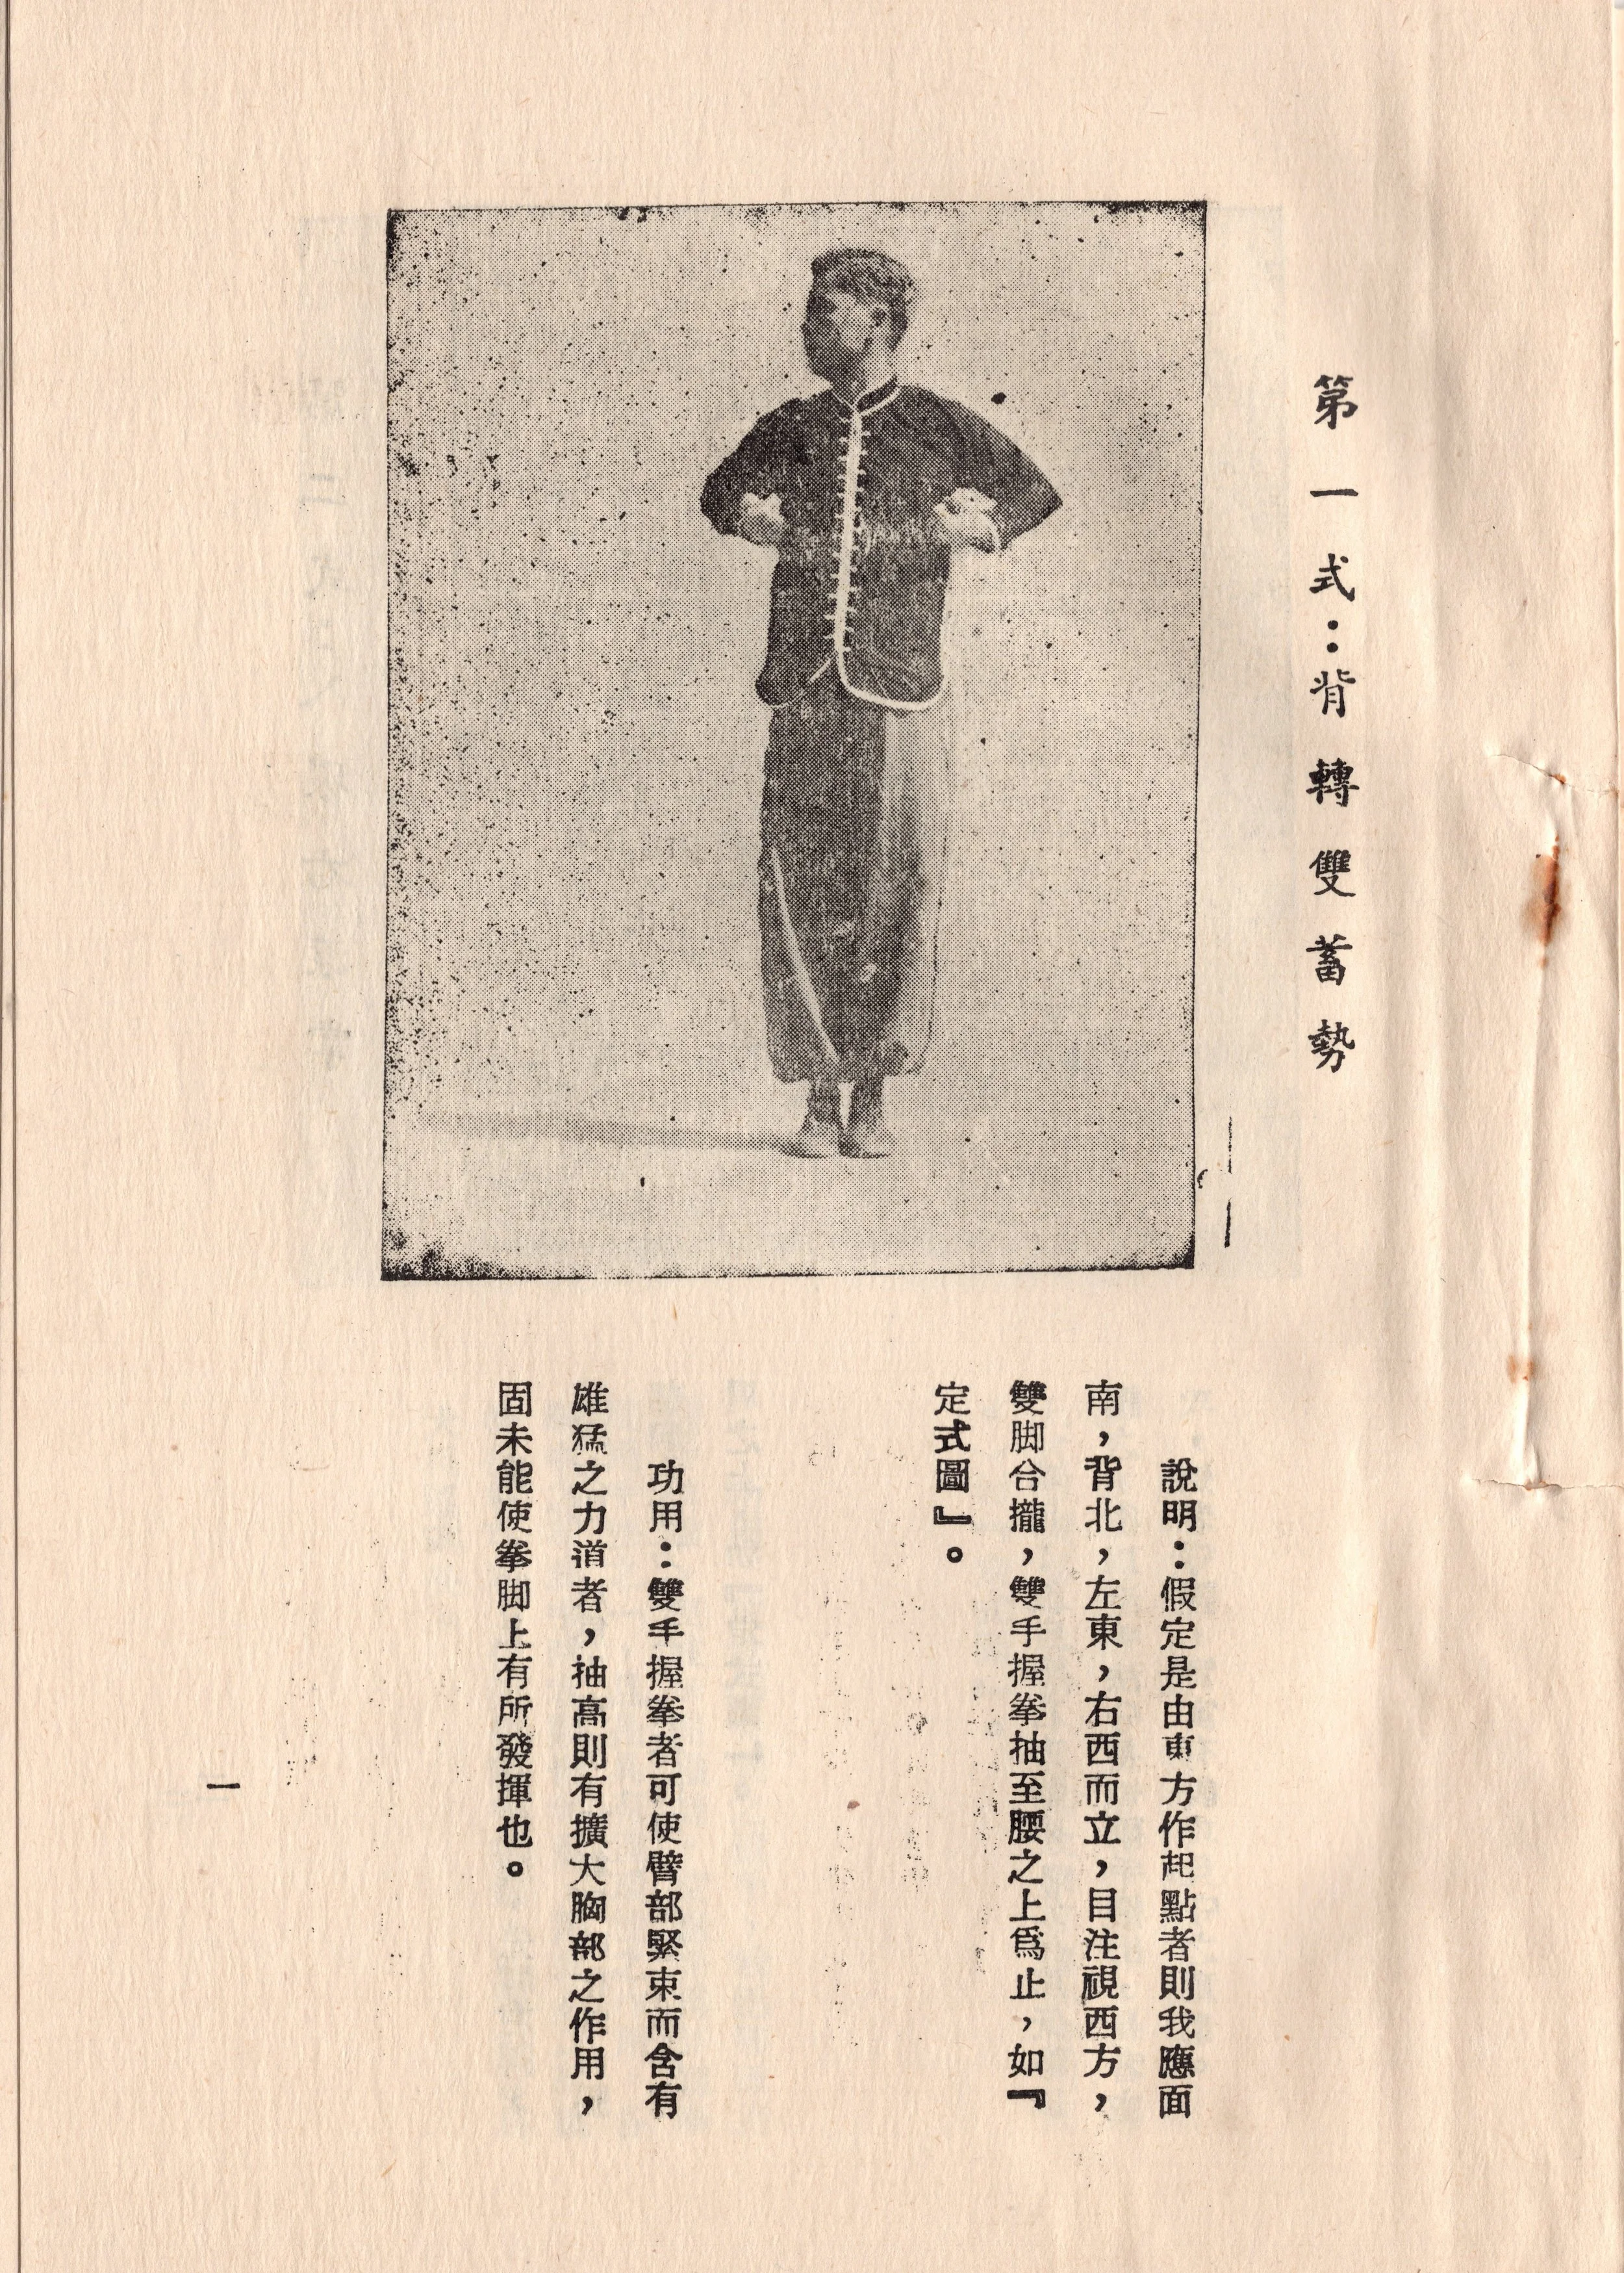 第一式：背轉雙蓄勢
說明：假定是由東方作起點者則我應面
南，背北，左東，右西而立，目注視西方，
雙脚合攏，雙手握拳抽至腰之上爲止，如『
定式圖』。
功用：雙手握拳者可使臂部緊束而含有
雄猛之力道者，抽高則有擴大胸部之作用，
固未能使拳脚上有所發揮也。
一